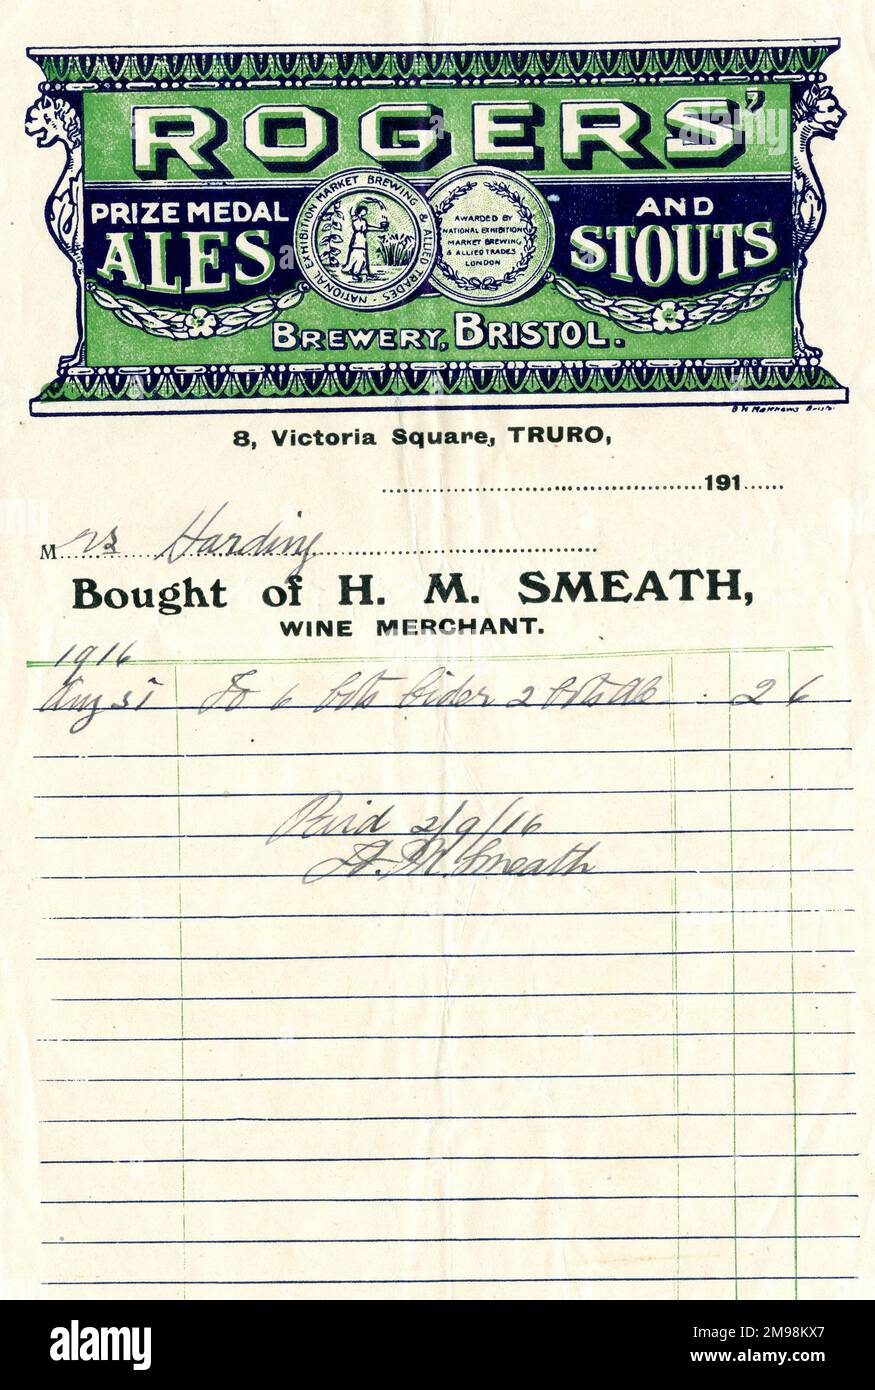 ROGERS'
PRIZE MEDAL ALES
NATIONAL EXHIBITION MARKET BREWING & ALLIED TRADES
AWARDED BY
NATIONAL EXHIBITION
MARKET BREWING
& ALLIED TRADES
LONDON
AND STOUTS
BREWERY, BRISTOL.
8, Victoria Square, TRURO,
191
Mrs Harding
Bought of H. M. SMEATH,
WINE MERCHANT.
1916
Aug 31 To 6 bots Cider 2 bots Ale . 2 6
Paid 2/9/16
H. M. Smeath
alamy
Image ID: 2M98KX7
www.alamy.com